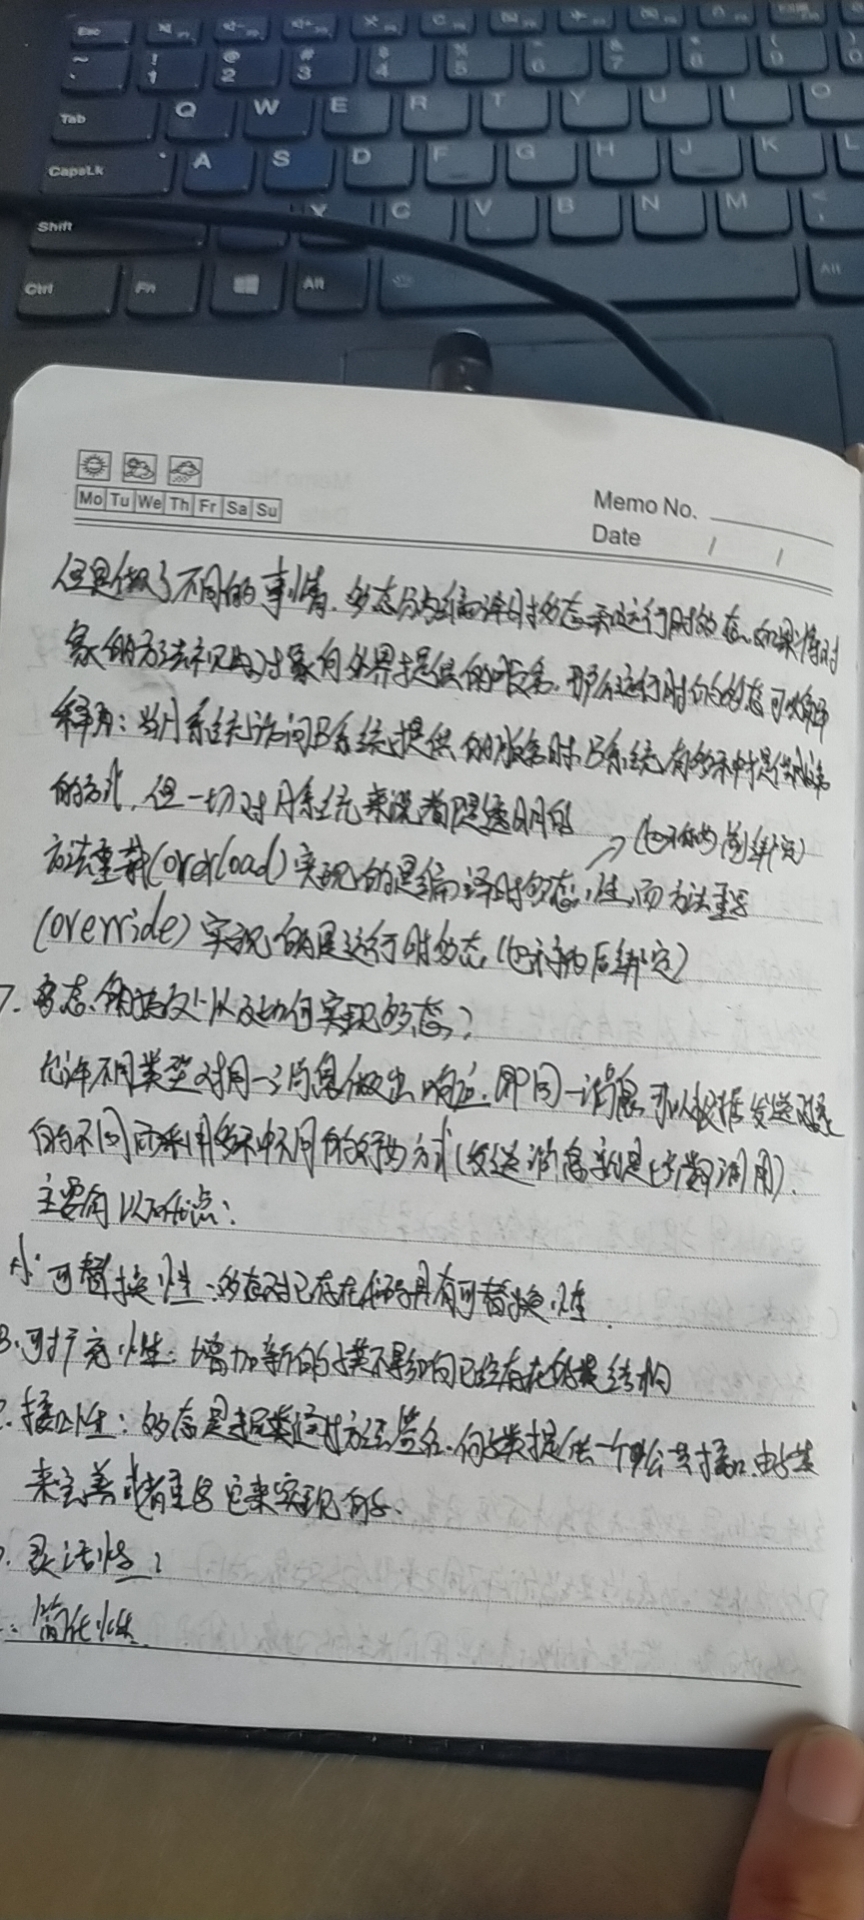 Esc
~ ! @ # $ % ^ & * ( )
` 1 2 3 4 5 6 7 8 9 0
Tab Q W E R T Y U I O
CapsLk A S D F G H J K L
Shift X C V B N M <
Ctrl Fn Alt Alt
Mo Tu We Th Fr Sa Su
Memo No.
Date / /
但是做了不同的事情。多态分为编译时多态和运行时多态。如果将对
象的方法视为对象向外界提供的服务,那么运行时的多态可以解
释为:当A系统访问B系统提供的服务时,B系统有多种提供服务
的方式,但一切对A系统来说都是透明的
(也称为前绑定)
方法重载(overload)实现的是编译时多态性,而方法重写
(override)实现的是运行时多态(也称为后绑定)
7. 多态的 以及如何实现多态?
允许不同类型对同一消息做出响应,即同一消息可以根据发送对象
的不同而采用多种不同的行为方式(发送消息就是函数调用)。
主要有以下优点:
可替换性:多态对已存在代码具有可替换性.
B.可扩充性:增加新的子类不影响已经存在的类结构
C.接口性:多态是超类通过方法签名,向子类提供一个公共接口,由子类
来完善或者重写它来实现的。
灵活性:
简化性